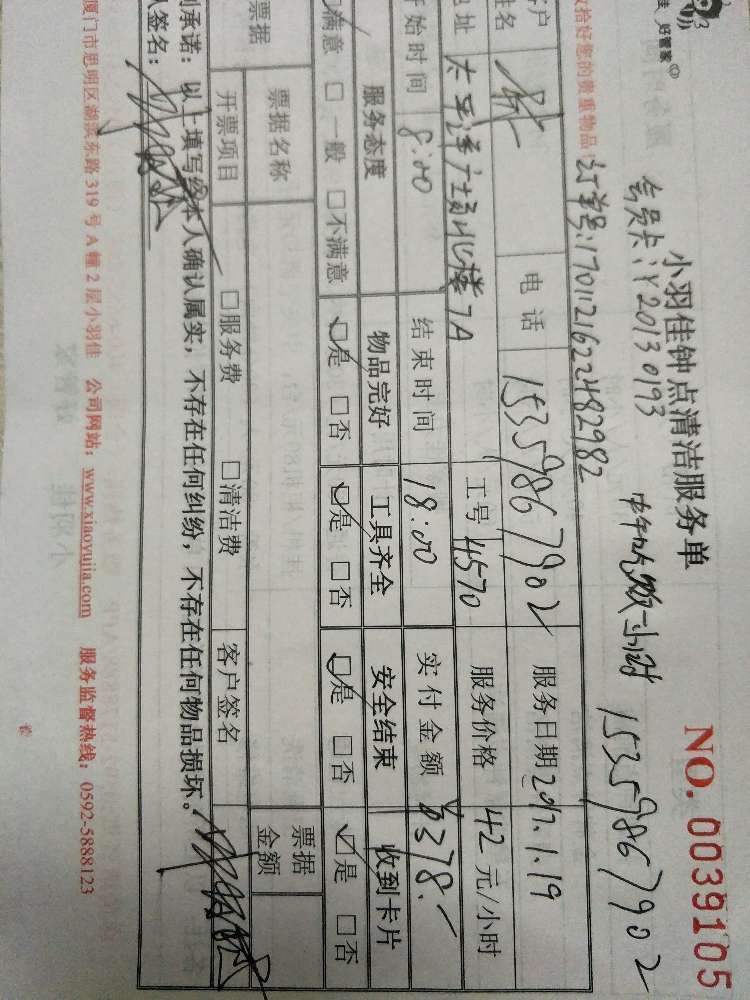 佳 好管家
小羽佳钟点清洁服务单
NO. 0039105
会员卡:Y20130193
中午吃饭一小时 15359867902
订单号:1701121622482982
收拾好您的贵重物品
客户姓名
电话 15359867902 服务日期 2017.1.19
地址 太平洋广场北楼7A 工号 4570 服务价格 42元/小时
开始时间 8:00 结束时间 18:00 实付金额 ¥378.-
服务态度 物品完好 工具齐全 安全结束 收到卡片
☑满意 □一般 □不满意 ☑是 □否 ☑是 □否 ☑是 □否 ☑是 □否
票据 票据名称 票据金额
开票项目 □服务费 □清洁费 客户签名
承诺:以上填写经本人确认属实,不存在任何纠纷,不存在任何物品损坏。
签名:
厦门市思明区湖滨东路319号A幢2层小羽佳 公司网站:www.xiaoyujia.com 服务监督热线:0592-5888123